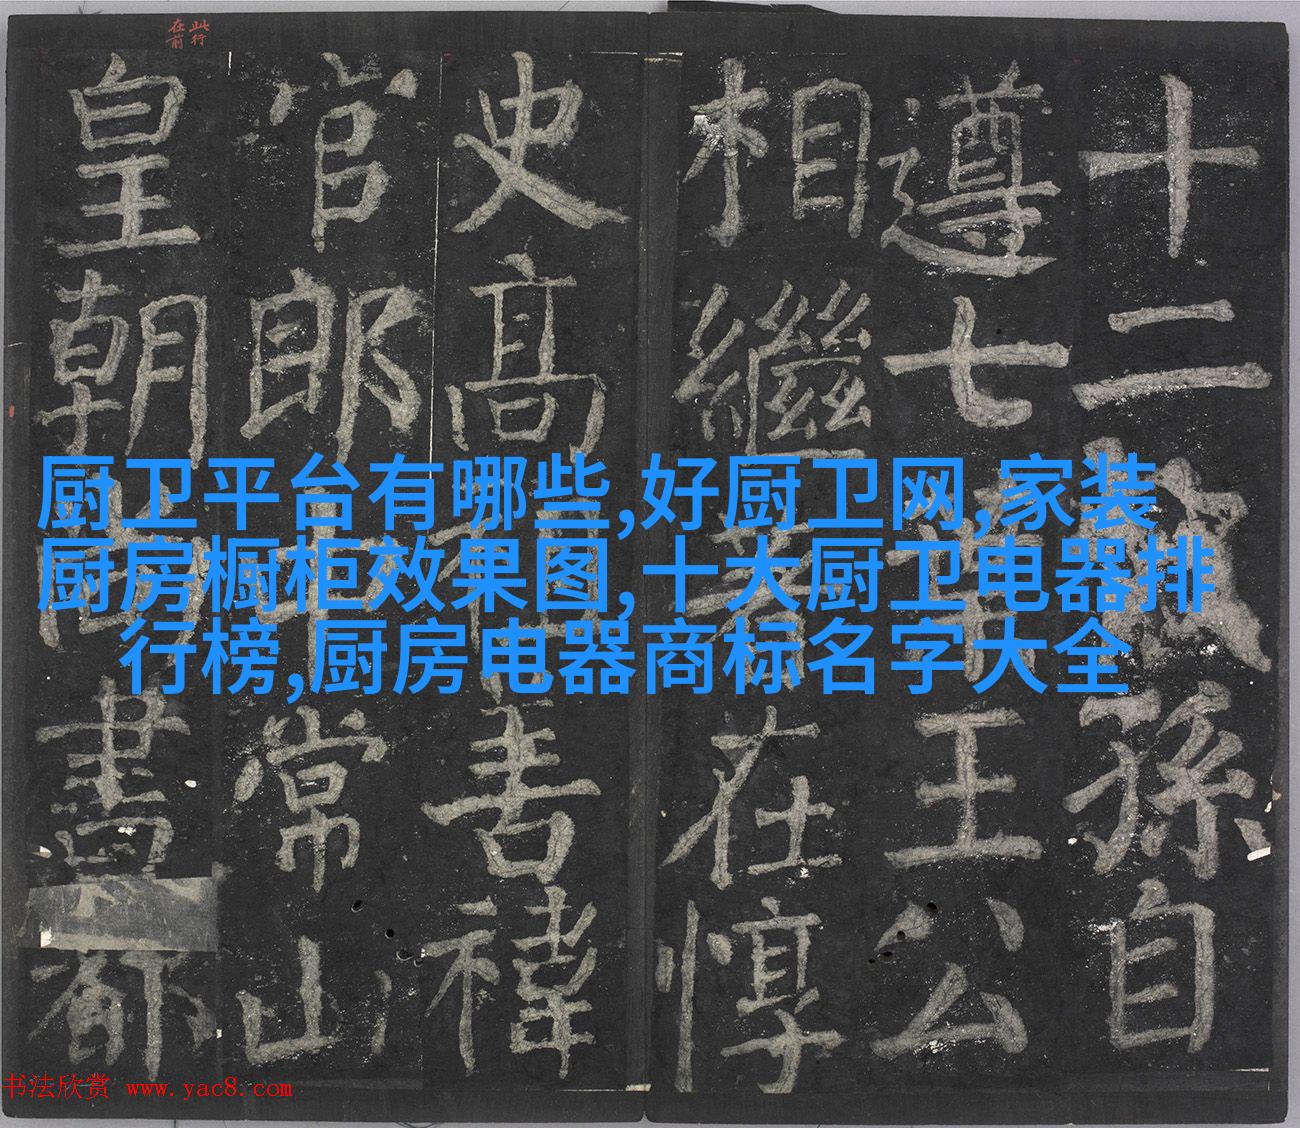 十二孫自
遵七王公
相繼在惇
史高善禕
官郎常山
皇朝書都
此行
在前
厨卫平台有哪些,好厨卫网,家装
厨房橱柜效果图,十大厨卫电器排
行榜,厨房电器商标名字大全
书法欣赏 www.yac8.com